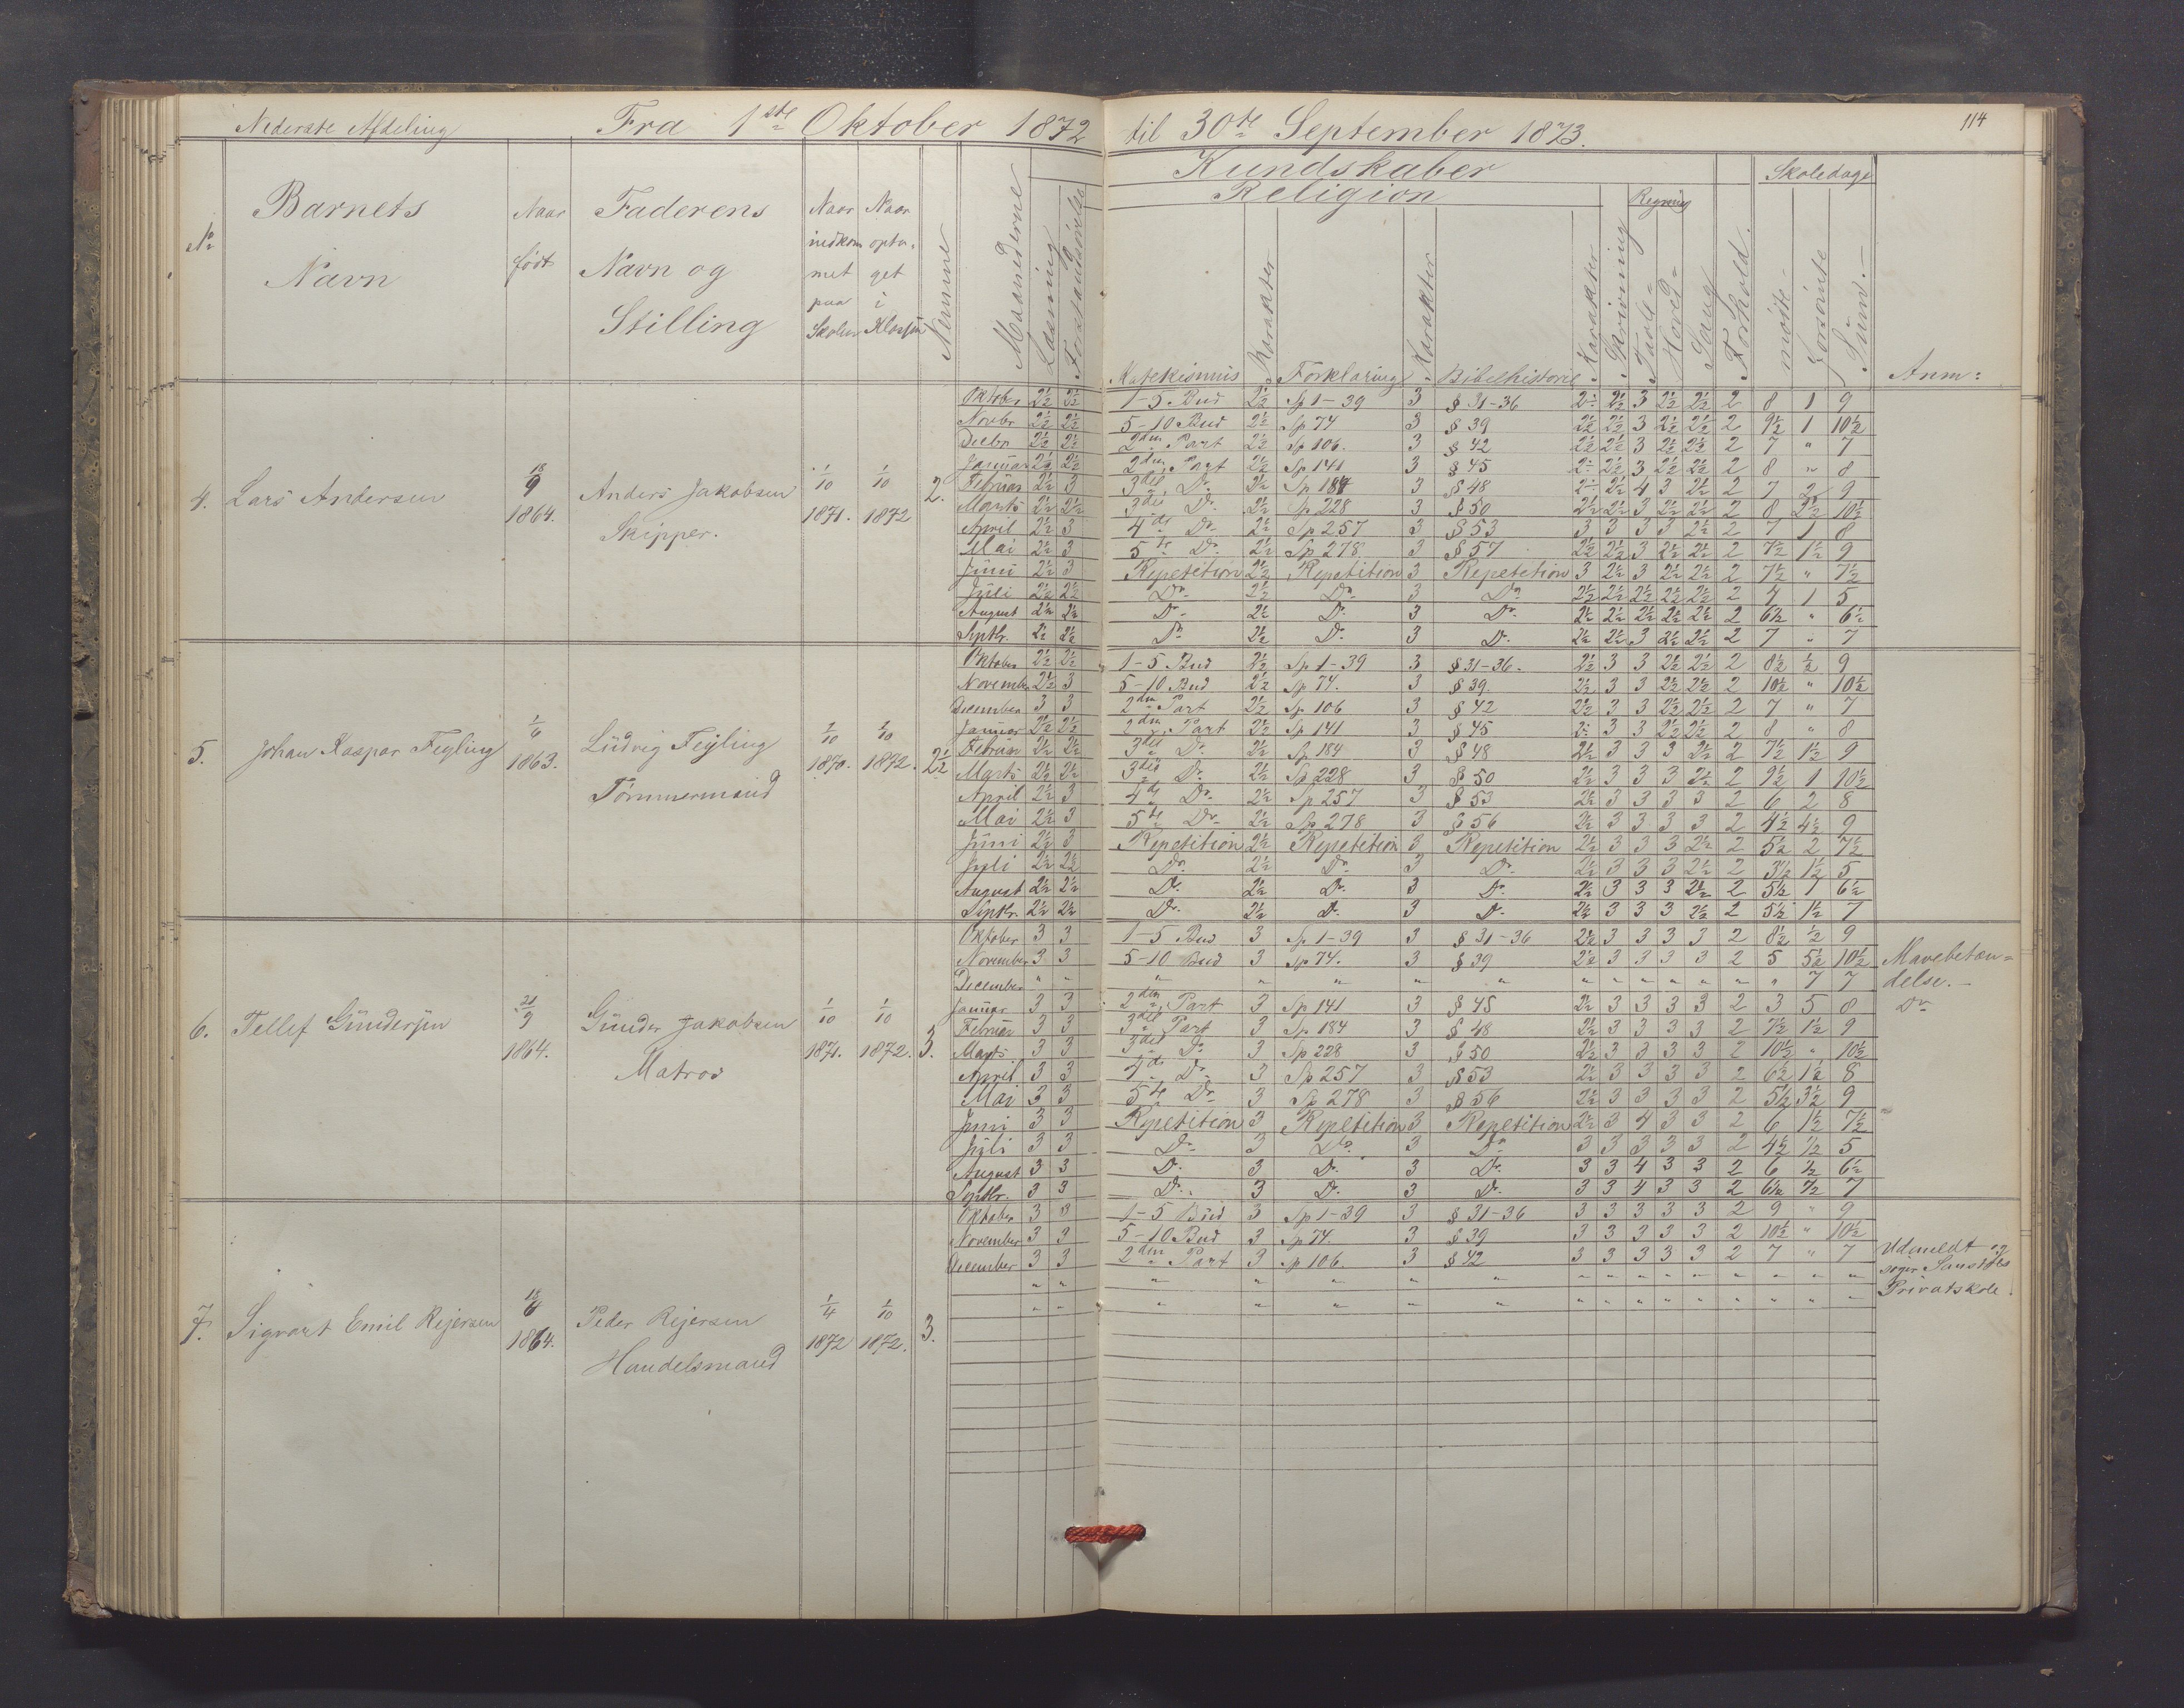 Nederste Afdeling Fra 1ste Oktober 1872 til 30te September 1873. 114
Kundskaber Skoledage
Religion Regning
No Barnets Navn Naar født Faderens Navn og Stilling Naar indkommet paa Skolen Naar optaget i Klassen Nemme Maanederne Læsning Forstandsøvelse Katekismus Karakter Forklaring Karakter Bibelhistorie Karakter Skrivning Tavle- Hoved- Sang Forhold. mødte- forsømte Sum.- Anm:
4. Lars Andersen 18/9 1864. Anders Jakobsen Skipper. 1/10 1871. 1/10 1872 2.
Oktober 2½ 2½ 1-5 Bud 2½ Sp 1-39 3 § 31-36 2½ 2½ 3 2½ 2½ 2 8 1 9
Novbr 2½ 2½ 5-10 Bud 2½ Sp 74 3 § 39 2½ 2½ 3 2½ 2½ 2 9½ 1 10½
Decbr 2½ 2½ 2den Part 2½ Sp 106. 3 § 42 2½ 2½ 3 2½ 2½ 2 7 " 7
Januar 2½ 2½ 2den Part 2½ Sp 141 3 § 45 2½ 2½ 3 2½ 2½ 2 8 " 8
Februar 2½ 3 3die Do 2½ Sp 184 3 § 48 2½ 2½ 4 3 2½ 2 7 2 9
Marts 2½ 2½ 3die Do 2½ Sp 228 3 § 50 2½ 2½ 3 2½ 2½ 2 8 2½ 10½
April 2½ 3 4de Do 2½ Sp 257 3 § 53 3 3 3 3 2½ 2 7 1 8
Mai 2½ 3 5te Do 2½ Sp 278 3 § 57 2½ 2½ 3 2½ 2½ 2 7½ 1½ 9
Juni 2½ 3 Repetition 2½ Repetition 3 Repetetion 3 2½ 3 2½ 2½ 2 7½ " 7½
Juli 2½ 2½ Do 2½ Do 3 Do 2½ 2½ 2½ 2½ 2½ 2 4 1 5
August 2½ 2½ Do 2½ Do 3 Do 2½ 2½ 2½ 2½ 2½ 2 6½ " 6½
Septbr. 2½ 2½ Do 2½ Do 3 Do 2½ 2½ 3 2½ 2½ 2 7 " 7
5. Johan Kaspar Feyling 1/6 1863. Ludvig Feyling Tømmermand 1/10 1870. 1/10 1872. 2½
Oktober 2½ 2½ 1-5 Bud 2½ Sp 1-39 3 § 31-36. 2½ 3 3 2½ 2½ 2 8½ ½ 9
November 2½ 3 5-10 Bud 2½ Sp 74. 3 § 39. 2½ 3 3 2½ 2½ 2 10½ " 10½
December 3 3 2den Part 2½ Sp 106 3 § 42 2½ 3 3 2½ 2½ 2 7 " 7
Januar 2½ 2½ 2den Part 2½ Sp 141 3 § 45 2½ 3 3 2½ 2½ 2 8 " 8
Februar 2½ 2½ 3die Do 2½ Sp 184 3 § 48 2½ 3 3 3 2½ 2 7½ 1½ 9
Marts 2½ 2½ 3die Do 2½ Sp 228 3 § 50 2½ 3 3 3 2½ 2 9½ 1 10½
April 2½ 3 4de Do 2½ Sp 257 3 § 53 2½ 3 3 3 3 2 6 2 8
Mai 2½ 3 5te Do 2½ Sp 278 3 § 56 2½ 3 3 3 3 2 4½ 4½ 9
Juni 2½ 3 Repetition 2½ Repetition 3 Repetition 2½ 3 3 3 2½ 2 5½ 2 7½
Juli 2½ 2½ Do 2½ Do 3 Do 2½ 3 3 3 2½ 2 3½ 1½ 5
August 2½ 2½ Do 2½ Do 3 Do 2½ 3 3 3 2½ 2 5½ 1 6½
Septbr. 2½ 2½ Do 2½ Do 3 Do 2½ 3 3 3 2½ 2 5½ 1½ 7
6. Tellef Gundersen 21/9 1864. Gunder Jakobsen Matros 1/10 1871. 1/10 1872. 3.
Oktober 3 3 1-5 Bud 3 Sp 1-39 3 § 31-36 2½ 3 3 3 3 2 8½ ½ 9
November 3 3 5-10 Bud 3 Sp 74. 3 § 39 2½ 3 3 3 3 2 5 5½ 10½ Mavebetæn=
December " " " " " " " " " " " " " " 7 7 delse.-
Januar 3 3 2den Part 3 Sp 141 3 § 45 2½ 3 3 3 3 2 3 5 8 Do
Februar 3 3 3die Part 3 Sp 184 3 § 48 2½ 3 3 3 3 2 7½ 1½ 9
Marts 3 3 3die Do 3 Sp 228 3 § 50 2½ 3 3 3 3 2 10½ " 10½
April 3 3 4de Do 3 Sp 257 3 § 53 2½ 3 3 3 3 2 6½ 1½ 8
Mai 3 3 5te Do 3 Sp 278 3 § 56 2½ 3 3 3 3 2 5½ 3½ 9
Juni 3 3 Repetition 3 Repetition 3 Repetition 2½ 3 4 3 3 2 6 1½ 7½
Juli 3 3 Do 3 Do 3 Do 3 3 3 3 3 2 4½ ½ 5
August 3 3 Do 3 Do 3 Do 3 3 4 3 3 2 6 ½ 6½
Septbr. 3 3 Do 3 Do 3 Do 3 3 4 3 3 2 6½ ½ 7
7. Sigvart Emil Rejersen 18/6 1864. Peder Rejersen Handelsmand 1/4 1872 1/10 1872. 3.
Oktober 3 3 1-5 Bud 3 Sp 1-39 3 § 31-36 3 3 3 3 3 2 9 " 9
November 3 3 5-10 Bud 3 Sp 74. 3 § 39 3 3 3 3 3 2 10½ " 10½
December 3 3 2den Part 3 Sp 106. 3 § 42 3 3 3 3 3 2 7 " 7 Udmeldt og
" " " " " " " " " " " " " " " " søger
" " " " " " " " " " " " " " " " Privatskole.